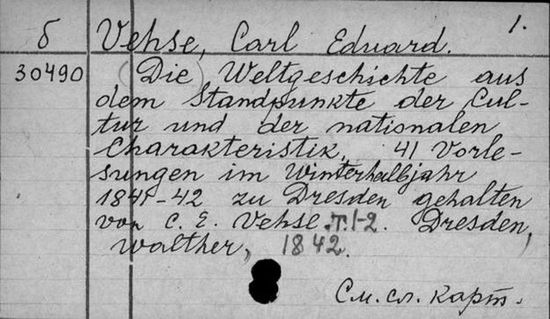 1.
б Vehse, Carl Eduard.
30490 (Die) Weltgeschichte aus
dem Standpunkte der Cul-
tur und der nationalen
Charakteristik. 41 Vorle-
sungen im Winterhalbjahr
1841-42 zu Dresden gehalten
von C. E. Vehse. T. 1-2. Dresden,
Walther, 1842.
См. сл. карт.